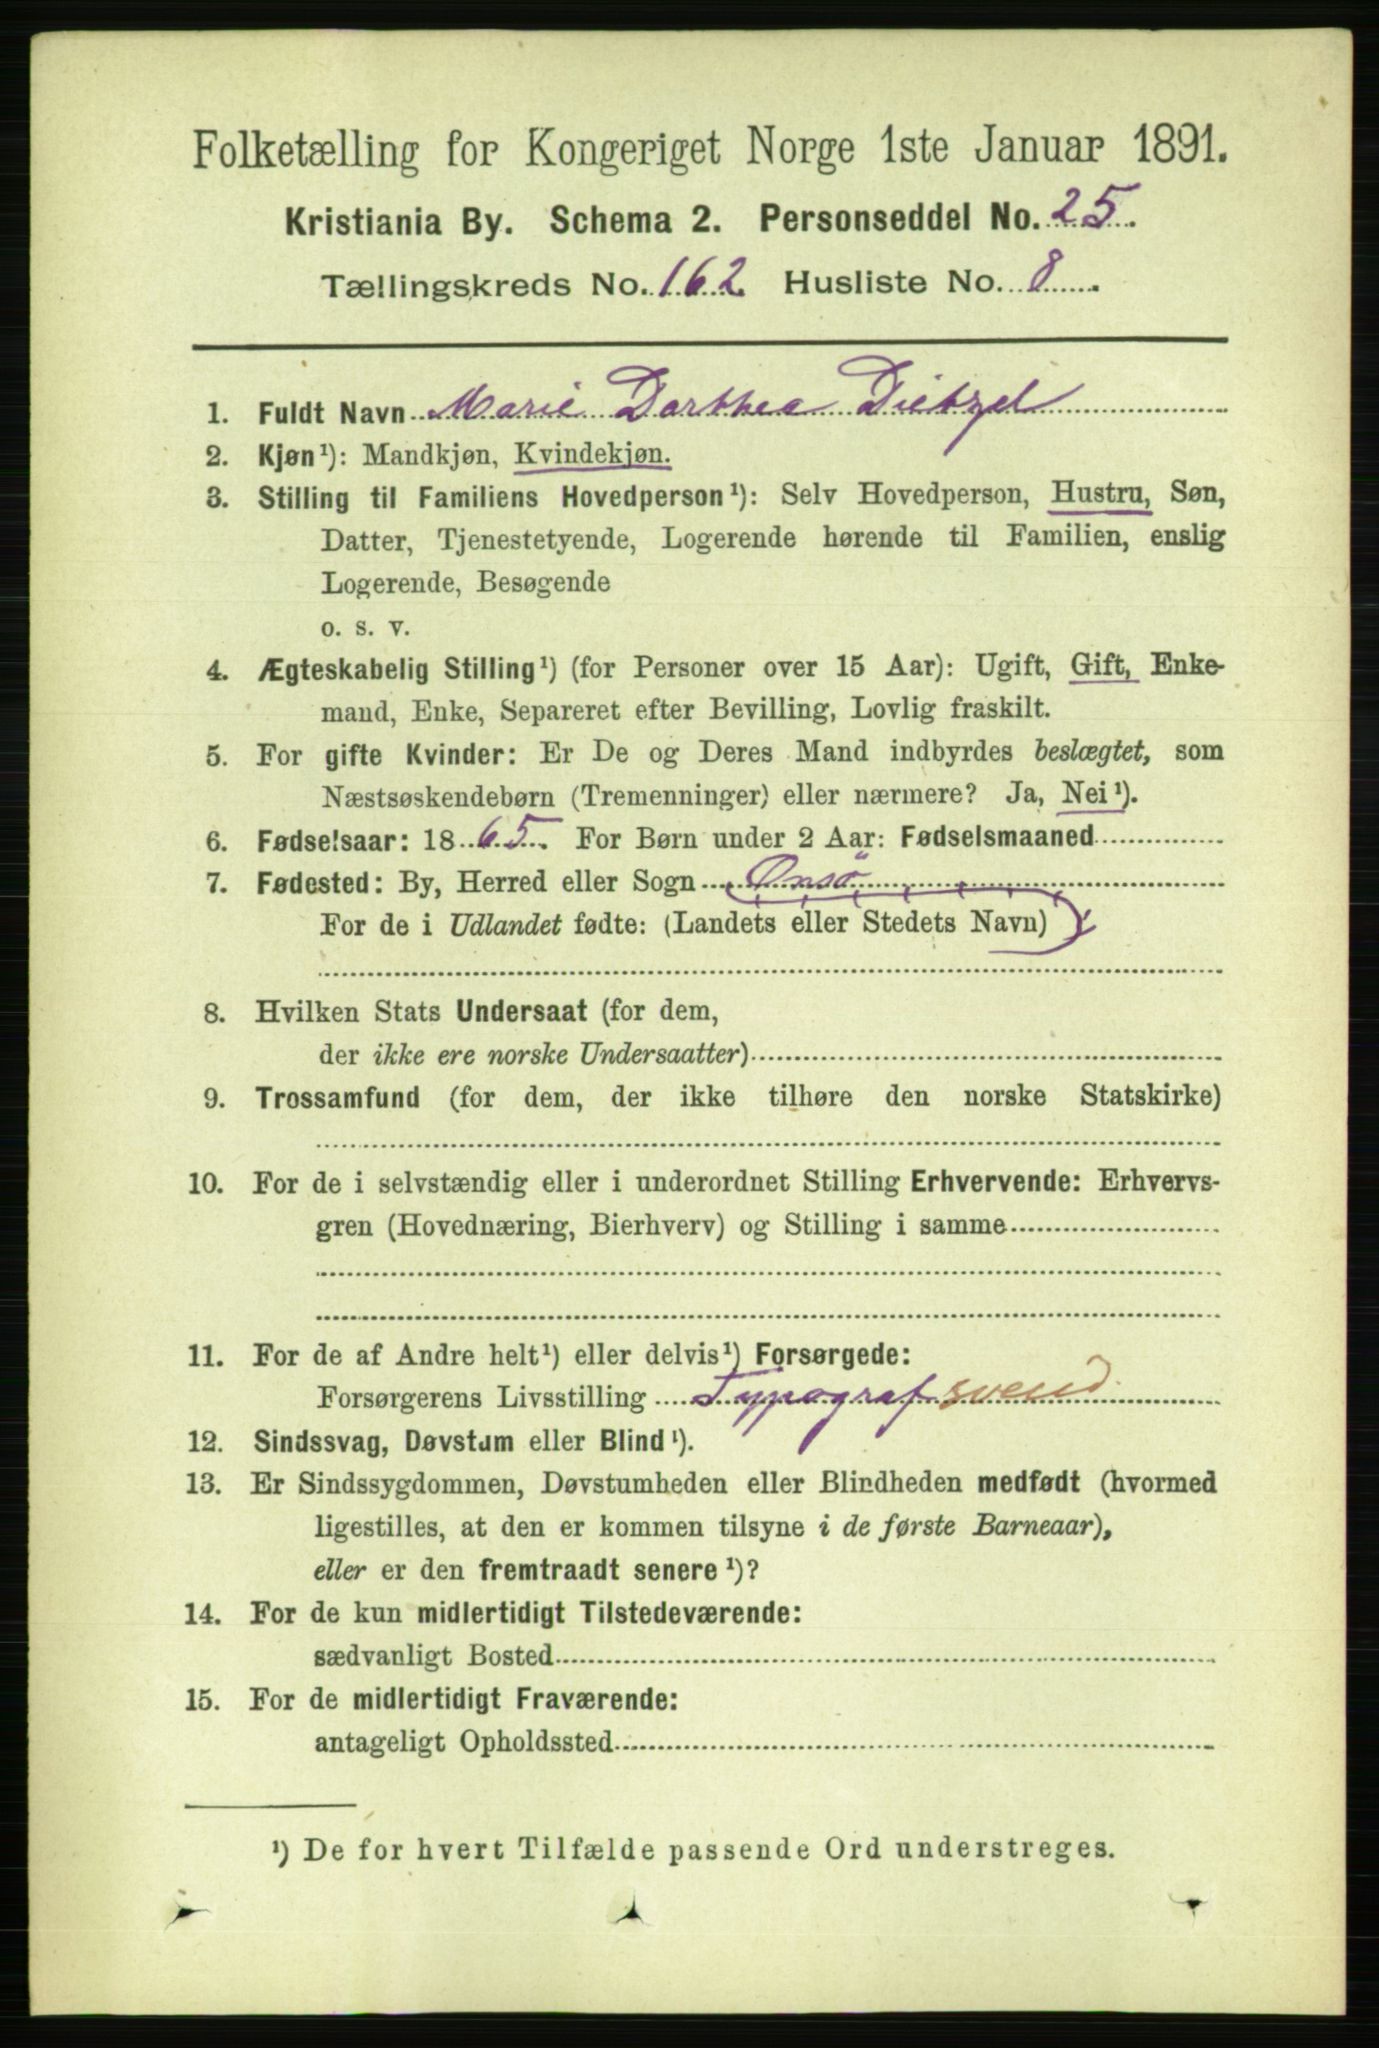 Folketælling for Kongeriget Norge 1ste Januar 1891.
Kristiania By. Schema 2. Personseddel No. 25.
Tællingskreds No. 162. Husliste No. 8.
1. Fuldt Navn Marie Dorthea Dietzel
2. Kjøn¹): Mandkjøn, Kvindekjøn.
3. Stilling til Familiens Hovedperson¹): Selv Hovedperson, Hustru, Søn,
Datter, Tjenestetyende, Logerende hørende til Familien, enslig
Logerende, Besøgende
o. s. v.
4. Ægteskabelig Stilling¹) (for Personer over 15 Aar): Ugift, Gift, Enke-
mand, Enke, Separeret efter Bevilling, Lovlig fraskilt.
5. For gifte Kvinder: Er De og Deres Mand indbyrdes beslægtet, som
Næstsøskendebørn (Tremenninger) eller nærmere? Ja, Nei¹).
6. Fødselsaar: 1865. For Børn under 2 Aar: Fødselsmaaned
7. Fødested: By, Herred eller Sogn Onsö
For de i Udlandet fødte: (Landets eller Stedets Navn)
8. Hvilken Stats Undersaat (for dem,
der ikke ere norske Undersaatter)
9. Trossamfund (for dem, der ikke tilhøre den norske Statskirke)
10. For de i selvstændig eller i underordnet Stilling Erhvervende: Erhvervs-
gren (Hovednæring, Bierhverv) og Stilling i samme
11. For de af Andre helt¹) eller delvis¹) Forsørgede:
Forsørgerens Livsstilling Typografsvend
12. Sindssvag, Døvstum eller Blind¹).
13. Er Sindssygdommen, Døvstumheden eller Blindheden medfødt (hvormed
ligestilles, at den er kommen tilsyne i de første Barneaar),
eller er den fremtraadt senere¹)?
14. For de kun midlertidigt Tilstedeværende:
sædvanligt Bosted
15. For de midlertidigt Fraværende:
antageligt Opholdssted
¹) De for hvert Tilfælde passende Ord understreges.